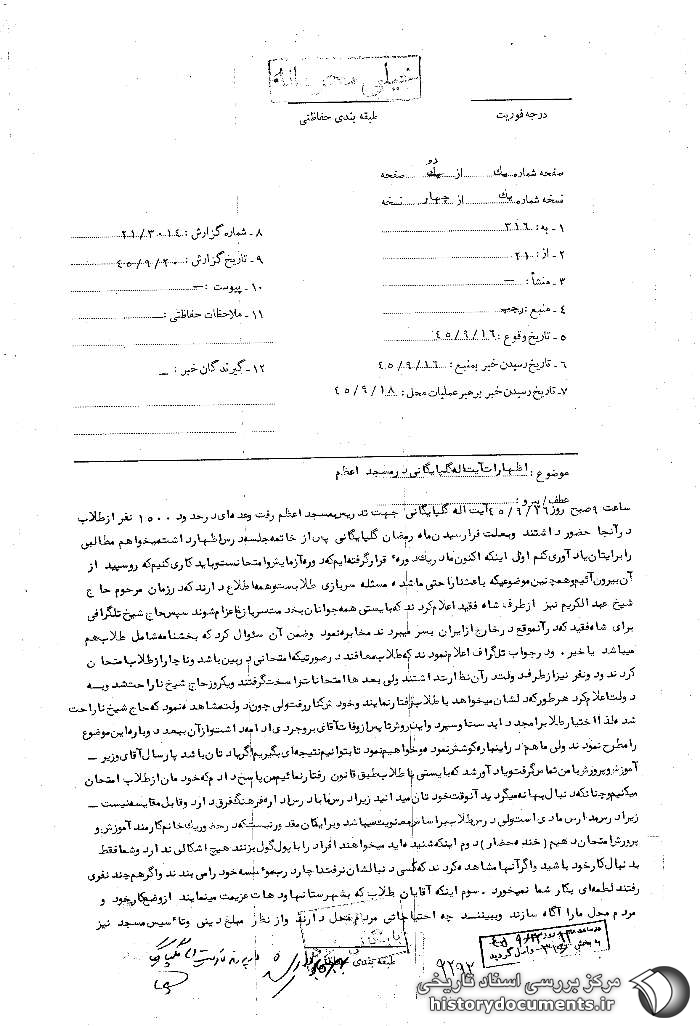 خیلی محرمانه
طبقه بندی حفاظتی
درجه فوریت
صفحه شماره یک از دو صفحه
نسخه شماره یک از چهار نسخه
۱ـ به: ۳۱۶
۲ـ از: ۲۱
۳ـ منشأ: ــ
۴ـ منبع: رجب
۵ـ تاریخ وقوع: ۴۵/۹/۱۶
۶ـ تاریخ رسیدن خبر بمنبع: ۴۵/۹/۱۶
۷ـ تاریخ رسیدن خبر برهبر عملیات محل: ۴۵/۹/۱۸
۸ـ شماره گزارش: ۲۱/۳۰۱۴
۹ـ تاریخ گزارش: ۴۵/۹/۲۰
۱۰ـ پیوست: ــ
۱۱ـ ملاحظات حفاظتی: ــ
۱۲ـ گیرندگان خبر: ــ
موضوع: اظهارات آیت اله گلپایگانی در مسجد اعظم
عطف/پیرو:
ساعت ۹ صبح روز ۴۵/۹/۱۶ آیت اله گلپایگانی جهت تدریس بمسجد اعظم رفت وعده‌ای در حدود ۱۵۰۰ نفر از طلاب
در آنجا حضور داشتند وبعلت فرارسیدن ماه رمضان گلپایگانی پس از خاتمه جلسه درس اظهار داشت میخواهم مطالبی
را برایتان یادآوری کنم اولی اینکه اکنون ما در یک دوره قرار گرفته‌ایم که دوره آزمایش وامتحانست وباید کاری کنیم که روسپید از
آن بیرون آئیم وهمچنین موضوعیکه باعث ناراحتی ما شده مسئله سربازی طلابست وهمه اطلاع دارند که در زمان مرحوم حاج
شیخ عبد الکریم نیز از طرف شاه فقید اعلام کردند که بایستی همه جوانان بخدمت سربازی اعزام شوند سپس حاج شیخ تلگرافی
برای شاه فقید که در آنموقع در خارج از ایران بسر میبردند مخابره نمود وضمن آن سئوال کرد که بخشنامه شامل طلاب هم
میباشد یا خیر. ودر جواب تلگراف اعلام نمودند که طلاب معافند در صورتیکه امتحانی در بین باشد وناچار از طلاب امتحان
کردند ودو نفر نیز از طرف دولت در آن نظارت داشتند ولی بعدها امتحانات را سخت گرفتند ویکروز حاج شیخ ناراحت شد وبه
دولت اعلام کرد هر طور که دلشان میخواهد با طلاب رفتار نمایند وخودش کنار رفت ولی چون دولت مشاهده نمود که حاج شیخ ناراحت
شد لذا اختیار طلاب را مجدداً بدست او سپرد واین روش تا پس از وفات آقای بروجردی ادامه داشت واز آن ببعد دوباره این موضوع
را مطرح نمودند ولی ما هم در اینباره کوشش نموده وخواهیم نمود تا بتوانیم نتیجه‌ای بگیریم اگر یادتان باشد پارسال آقای وزیر ـ
آموزش وپرورش با من تماس گرفت ویادآور شد که بایستی با طلاب طبق قانون رفتار نمائیم من پاسخ دادم که خودمان از طلاب امتحان
میکنیم وچنانکه دنبال بهانه میگردید آنوقت خودتان میدانید زیرا درس ما با درس اداره فرهنگ فرق دارد وقابل مقایسه نیست ـ
زیرا درس مدارس مادی است ولی درس طلاب بر اساس معنویت میباشد وبرایکان مقدور نیست که در حضور یک خانم کارمند آموزش و
پرورش امتحان دهیم (خنده حضار) دوم اینکه شنیده‌اید میخواهند افراد را با پول گول بزنند هیچ اشکالی ندارد وشما فقط
بدنبال کار خود باشید واگر آنها مشاهده کردند که کسی دنبالشان نرفت ناچار در مؤسسه خود را می بندند واگر هم چند نفری
رفتند لطمه‌ای بکار شما نمیخورد. سوم اینکه آقایان طلاب که بشهرستانها ودهات عزیمت مینمایند از وضع کار خود و
مردم محل ما را آگاه سازند وببینند چه احتیاجاتی مردم محل دارند واز نظر مبلغ دینی وتأسیس مسجد نیز
طبقه بندی حفاظتی
به بخش ۳۱۶ واصل گردید
۹۲۹۲
مرکز بررسی اسناد تاریخی
historydocuments.ir